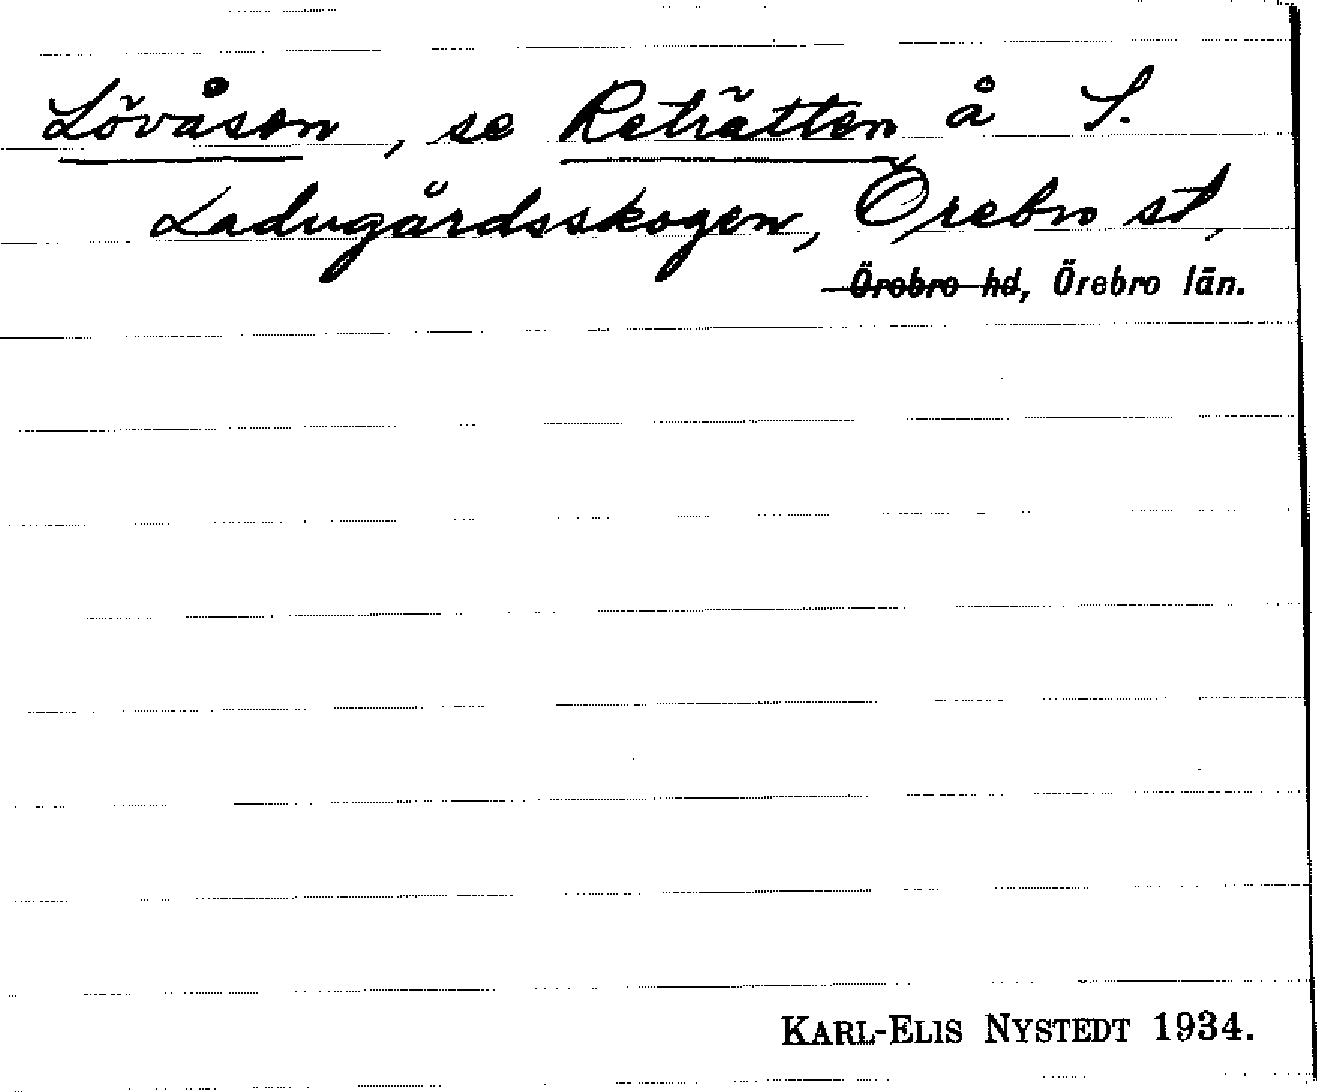 Lövåsen, se Reträtten å S.
Ladugårdsskogen, Örebro st,
Örebro hd, Örebro län.
KARL-ELIS NYSTEDT 1934.